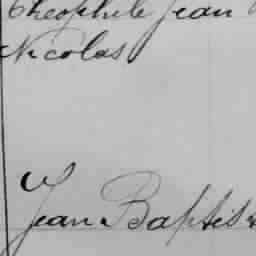 Theophile Jean
Nicolas
Jean Baptis